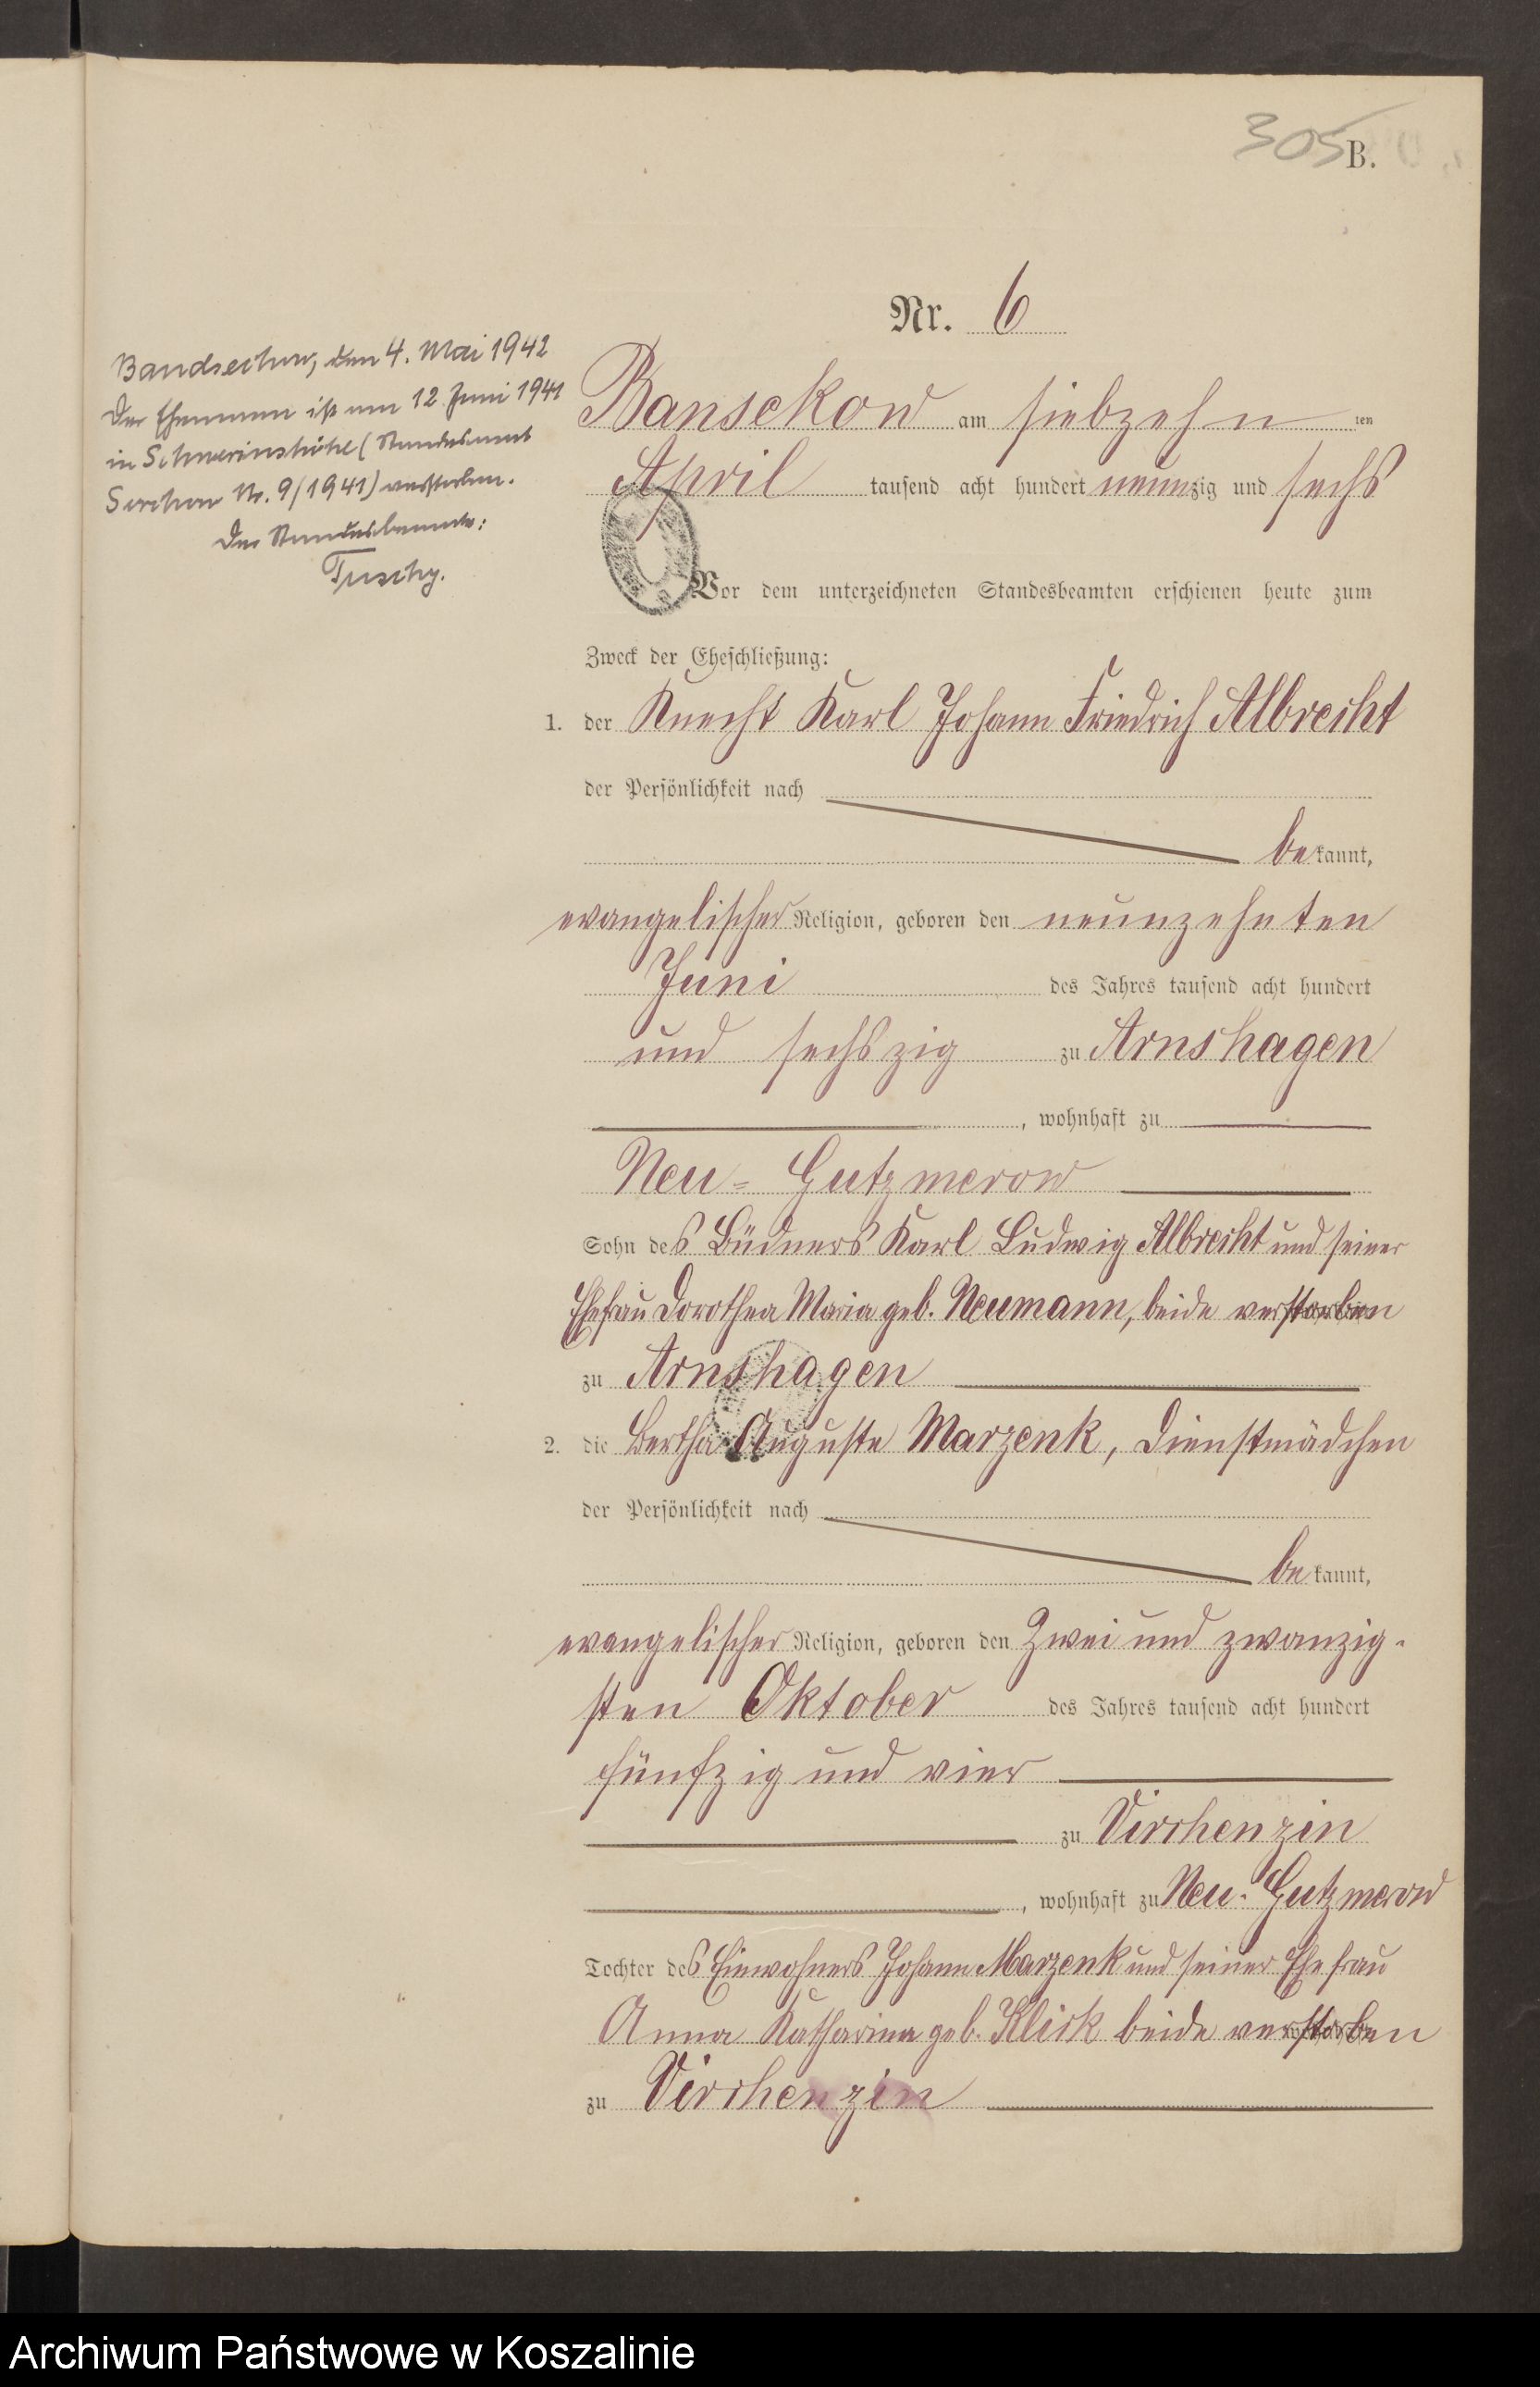 305 B.
Nr. 6
Bandsechow, den 4. Mai 1942
Der Ehemann ist am 12. Juni 1941
in Schwerinshöhe (Standesamt
Sorchow Nr. 9/1941) verstorben.
Der Standesbeamte:
Tuschy.
Bansekow am siebzehn ten
April tausend acht hundert neunzig und sechs
Vor dem unterzeichneten Standesbeamten erschienen heute zum
Zweck der Eheschließung:
1. der Knecht Karl Johann Friedrich Albrecht
der Persönlichkeit nach
bekannt,
evangelischer Religion, geboren den neunzehnten
Juni des Jahres tausend acht hundert
und sechszig zu Arnshagen
, wohnhaft zu
Neu-Gutzmerow
Sohn des Büdners Karl Ludwig Albrecht und seiner
Ehefrau Dorothea Maria geb. Neumann, beide verstorben
zu Arnshagen
2. die Bertha Auguste Marzenk, Dienstmädchen
der Persönlichkeit nach
bekannt,
evangelischer Religion, geboren den Zwei und zwanzig-
sten Oktober des Jahres tausend acht hundert
fünfzig und vier
zu Virchenzin
, wohnhaft zu Neu-Gutzmerow
Tochter des Einwohners Johann Marzenk und seiner Ehefrau
Anna Katharina geb. Klick beide verstorben
zu Virchenzin
Archiwum Państwowe w Koszalinie